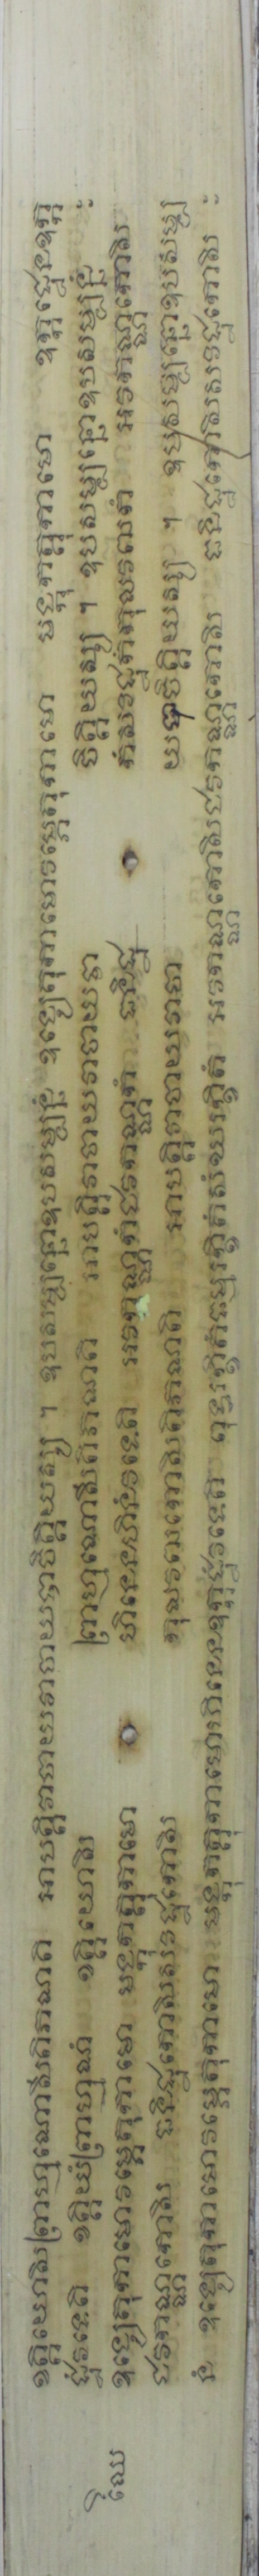 ខត្តិយោសិព្រាហ្មណោសីតិភណតិ អាបត្តិវាចាយវាចាយបាចិត្តិយស្ស ។ ឧបសម្បន្នោឧបសម្បន្នំ ខុំសេតុកាមោវម្ភេតុកាមោ មង្កុកត្តុកាមោ ឧក្កដ្ឋេនឧក្ក
ដ្ឋំវទេតិ ខត្តិយំព្រាហ្មណំ ខត្តិយោសិ ព្រាហ្មណោសីតិភណតិ អាបត្តិវាចាយវាចាយបា ចិត្តិយស្ស ។ ឧបសម្បន្នោឧបសម្បន្នំ
ឈៃ ខុំសេតុកាមោវម្ភេតុកាមោ មង្កុកត្តុកាមោ ហីនេនហីនំវទេតិ អវកណ្ណកំជវកណ្ណកំ ធនិដ្ឋ កំសវិដ្ឋកំកុលវឌ្ឍកំ អវកណ្ណកោសិ
ជវកណ្ណកោសិ ធនិដ្ឋកោសិសវិដ្ឋកោសិ កុលវឌ្ឍកោសិតិភណតិ អាបត្តិវាចាយវាចា យបាចិត្តិយស្ស ។ ឧបសម្បន្នោឧបសម្ប
ន្នំ ខុំសេតុកាមោវម្ភេតុកាមោ មង្កុកត្តុកាមោហីនេនឧក្កដ្ឋំវទេតិ ពុទ្ធរក្ខិតំធម្មរក្ខិតំសំឃរក្ខិតំ អវកណ្ណកោសិជវកណ្ណកោសិ ធនិដ្ឋកោសិសវិដ្ឋកោសិ